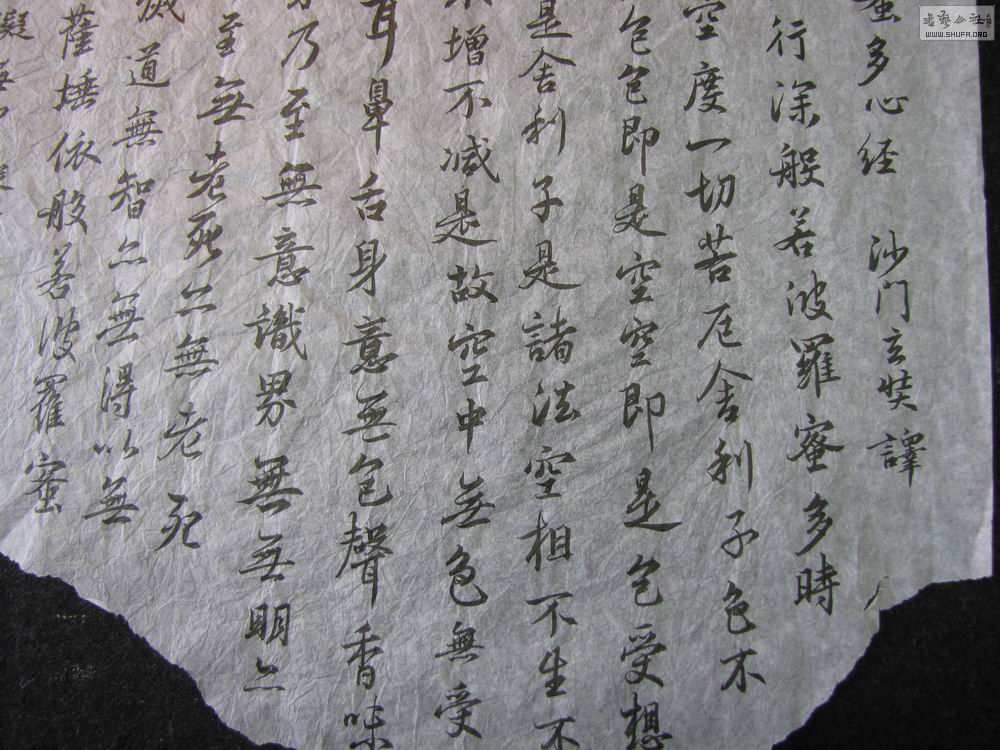 蜜多心経 沙門玄奘譯
行深般若波羅蜜多時
空度一切苦厄舍利子色不
色色即是空空即是色受想
是舍利子是諸法空相不生不
增不減是故空中無色無受
耳鼻舌身意無色聲香味
乃至無意識界無無明亦
至無老死亦無老死
道無智亦無得以無
薩埵依般若波羅蜜
書藝公社
WWW.SHUFA.ORG